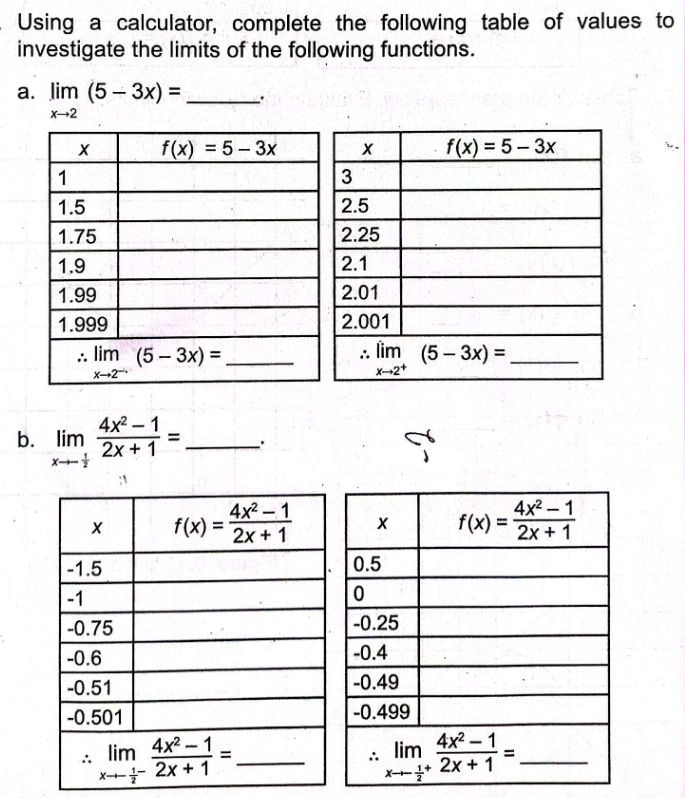 Using a calculator, complete the following table of values to
investigate the limits of the following functions.
a. lim x→2 (5 – 3x) = ______.
x f(x) = 5 – 3x
1
1.5
1.75
1.9
1.99
1.999
∴ lim x→2⁻ (5 – 3x) = ______
x f(x) = 5 – 3x
3
2.5
2.25
2.1
2.01
2.001
∴ lim x→2⁺ (5 – 3x) = ______
b. lim x→–½ (4x² – 1)/(2x + 1) = ______.
-2
x f(x) = (4x² – 1)/(2x + 1)
-1.5
-1
-0.75
-0.6
-0.51
-0.501
∴ lim x→–½⁻ (4x² – 1)/(2x + 1) = ______
x f(x) = (4x² – 1)/(2x + 1)
0.5
0
-0.25
-0.4
-0.49
-0.499
∴ lim x→–½⁺ (4x² – 1)/(2x + 1) = ______